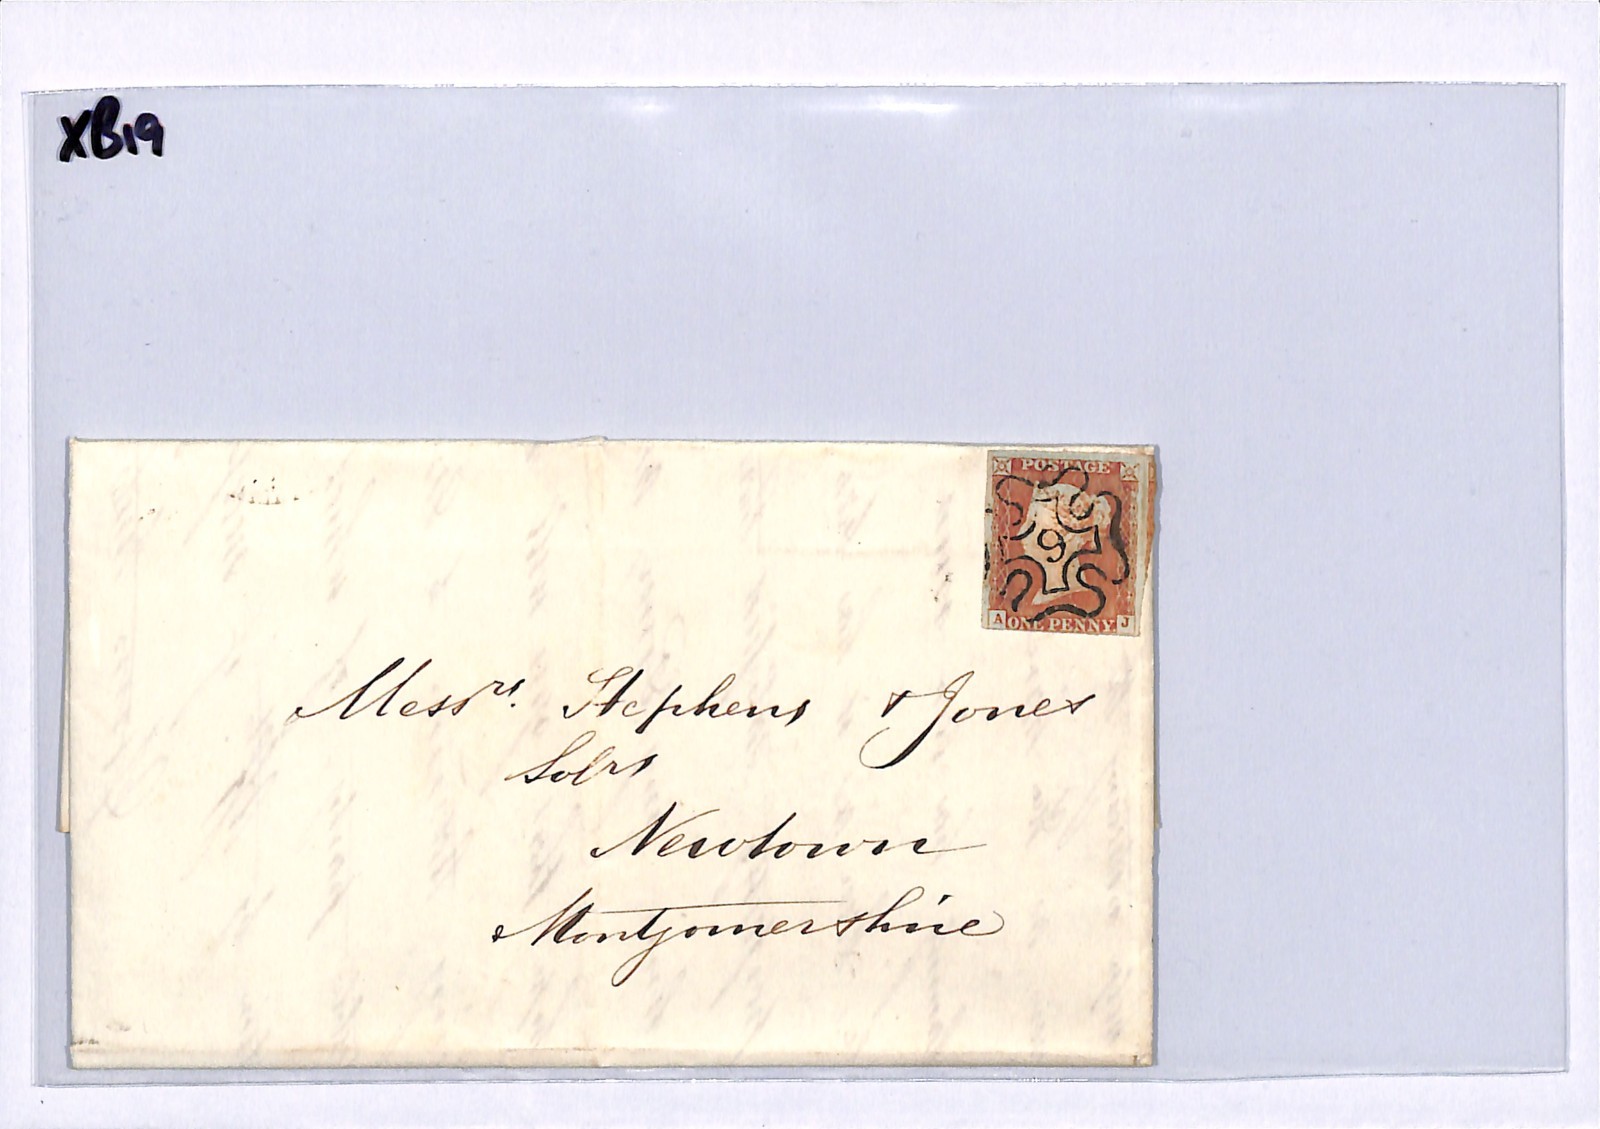 XB19
POSTAGE
9
A ONE PENNY J
Messrs. Stephens & Jones
Solrs
Newtown
Montgomeryshire